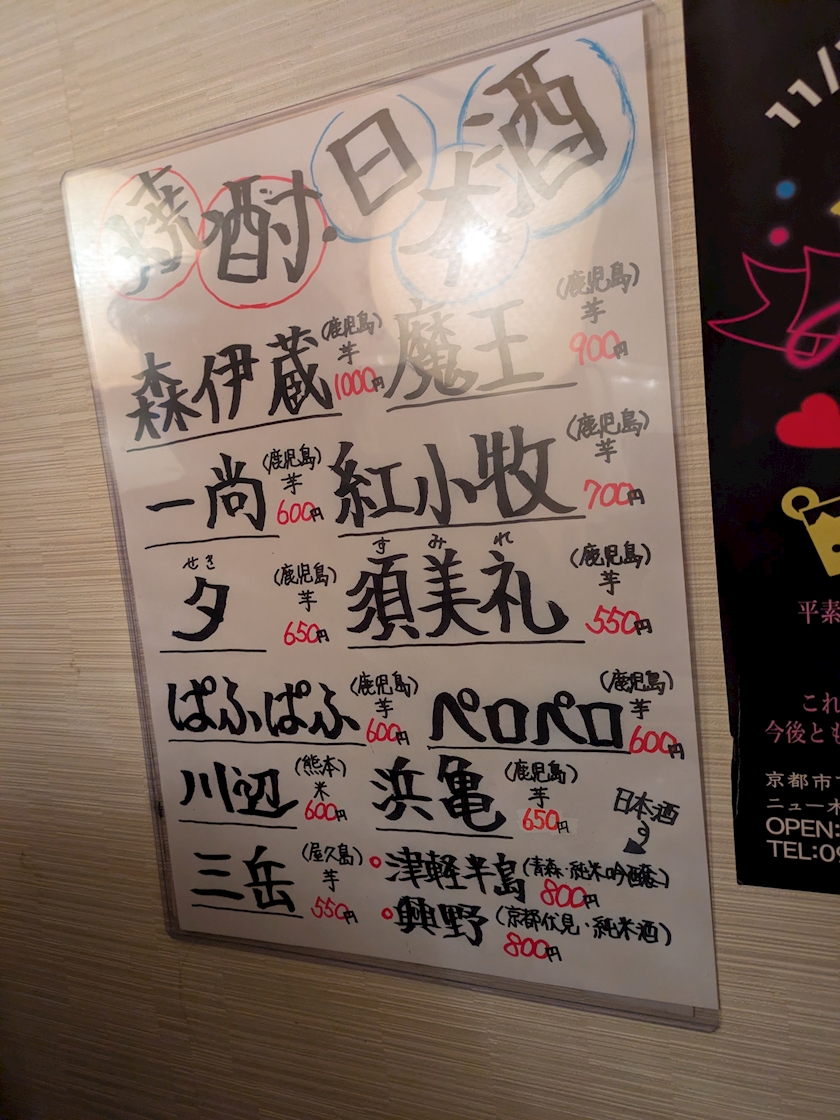 焼酎・日本酒
森伊蔵 (鹿児島) 芋 1000円
魔王 (鹿児島) 芋 900円
一尚 (鹿児島) 芋 600円
紅小牧 (鹿児島) 芋 700円
せき
夕 (鹿児島) 芋 650円
すみれ
須美礼 (鹿児島) 芋 550円
ぱふぱふ (鹿児島) 芋 600円
ペロペロ (鹿児島) 芋 600円
川辺 (熊本) 米 600円
浜亀 (鹿児島) 芋 650円
三岳 (屋久島) 芋 550円
日本酒
津軽半島 (青森・純米吟醸) 800円
興野 (京都伏見・純米酒) 800円
11/
平素
これ
今後とも
京都市
ニュー
OPEN:
TEL:09